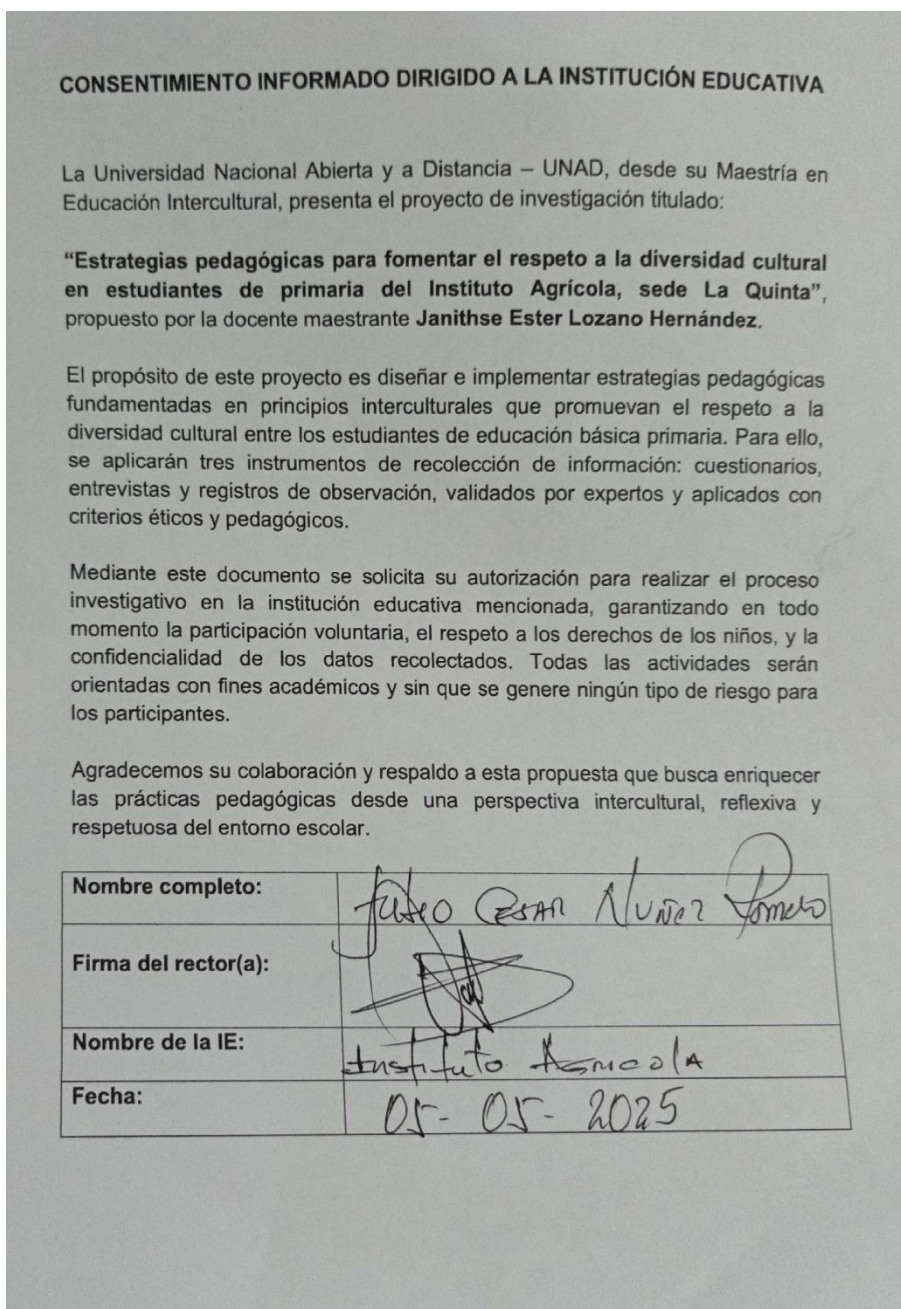 CONSENTIMIENTO INFORMADO DIRIGIDO A LA INSTITUCIÓN EDUCATIVA
La Universidad Nacional Abierta y a Distancia – UNAD, desde su Maestría en
Educación Intercultural, presenta el proyecto de investigación titulado:
“Estrategias pedagógicas para fomentar el respeto a la diversidad cultural
en estudiantes de primaria del Instituto Agrícola, sede La Quinta”,
propuesto por la docente maestrante Janithse Ester Lozano Hernández.
El propósito de este proyecto es diseñar e implementar estrategias pedagógicas
fundamentadas en principios interculturales que promuevan el respeto a la
diversidad cultural entre los estudiantes de educación básica primaria. Para ello,
se aplicarán tres instrumentos de recolección de información: cuestionarios,
entrevistas y registros de observación, validados por expertos y aplicados con
criterios éticos y pedagógicos.
Mediante este documento se solicita su autorización para realizar el proceso
investigativo en la institución educativa mencionada, garantizando en todo
momento la participación voluntaria, el respeto a los derechos de los niños, y la
confidencialidad de los datos recolectados. Todas las actividades serán
orientadas con fines académicos y sin que se genere ningún tipo de riesgo para
los participantes.
Agradecemos su colaboración y respaldo a esta propuesta que busca enriquecer
las prácticas pedagógicas desde una perspectiva intercultural, reflexiva y
respetuosa del entorno escolar.
Nombre completo: CESAR NUÑEZ
Firma del rector(a):
Nombre de la IE: Instituto Agricola
Fecha: 05-05-2025